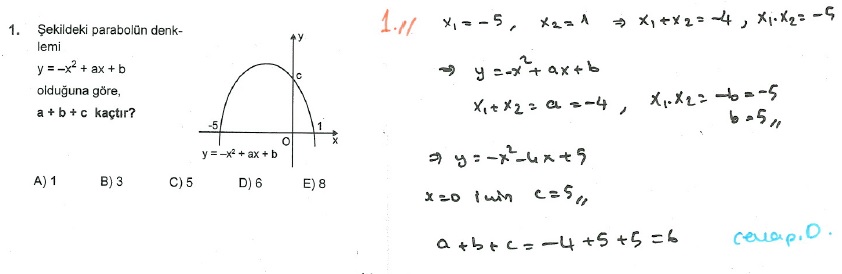 1. Şekildeki parabolün denk-
lemi
y = –x² + ax + b
olduğuna göre,
a + b + c kaçtır?
y
c
-5
O
1
x
y = –x² + ax + b
A) 1 B) 3 C) 5 D) 6 E) 8
1.// x₁ = -5 , x₂ = 1 ⇒ x₁ + x₂ = -4 , x₁.x₂ = -5
⇒ y = -x² + ax + b
x₁ + x₂ = a = -4 , x₁.x₂ = -b = -5
b = 5 //
⇒ y = -x² - 4x + 5
x = 0 için c = 5 //
a + b + c = -4 + 5 + 5 = 6 cevap. D.